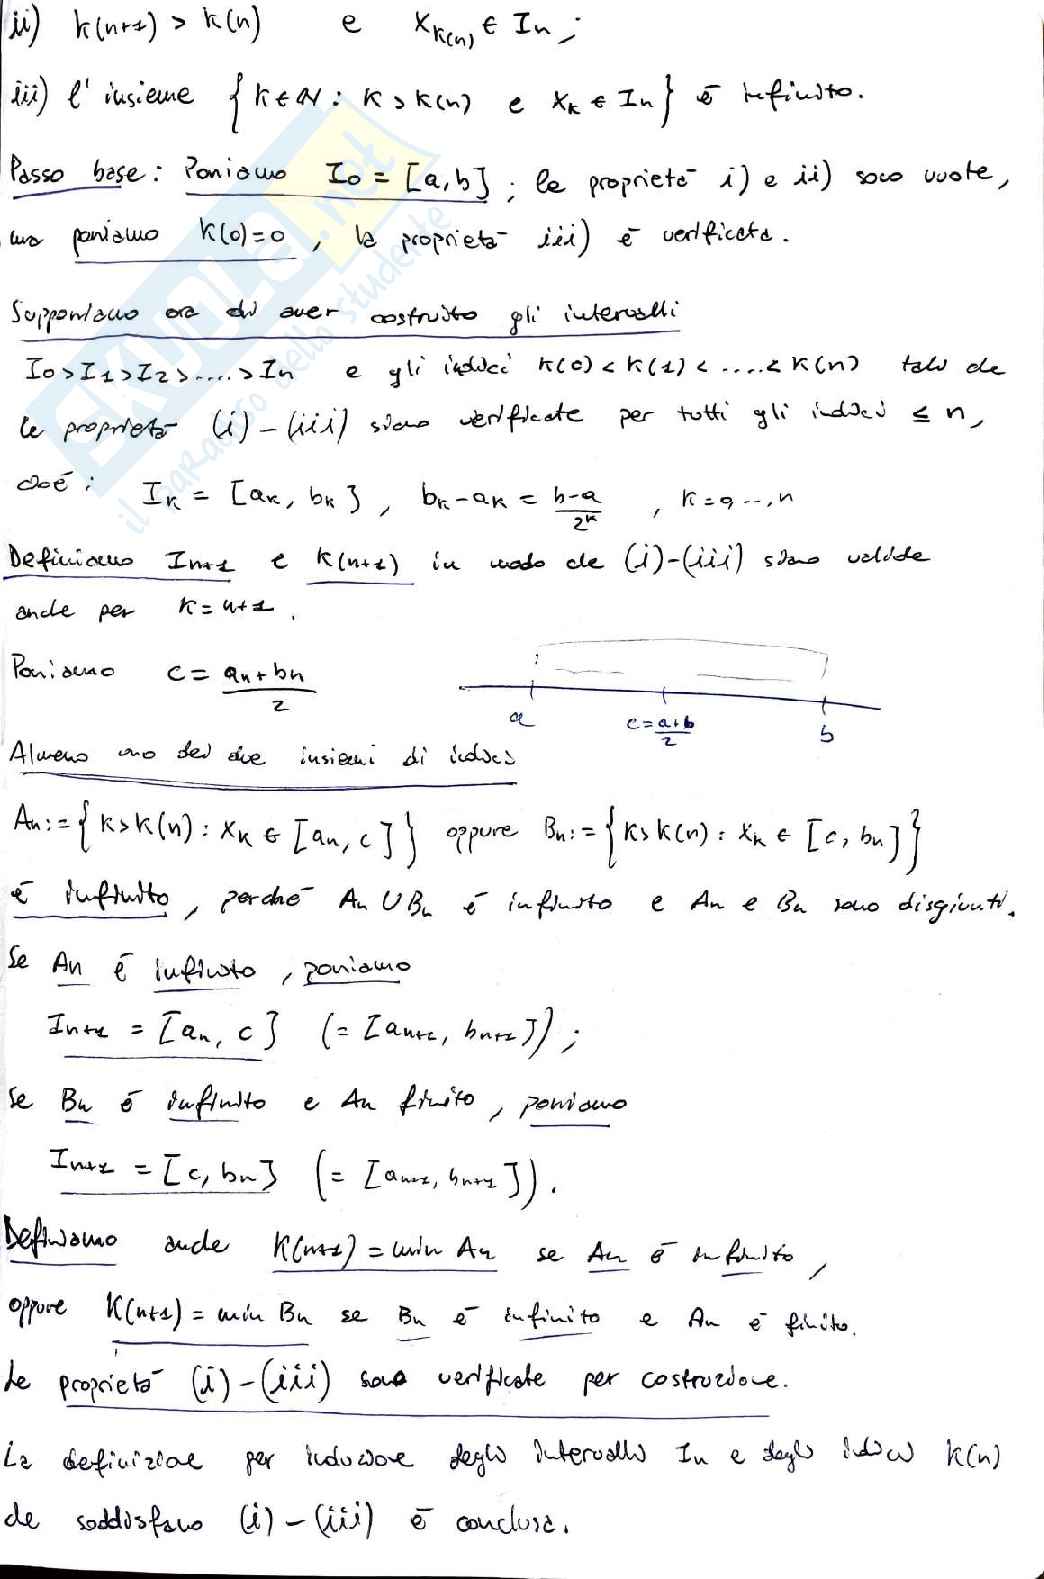 ii) k(n+1) > k(n) e x_k(n) ∈ In ;
iii) l'insieme {k∈N : k > k(n) e x_k ∈ In} è infinito.
Passo base : Poniamo I0 = [a,b] ; le proprietà i) e ii) sono vuote,
ma poniamo k(0)=0 , la proprietà iii) è verificata.
Supponiamo ora di aver costruito gli intervalli
I0 > I1 > I2 > ..... > In e gli indici k(0) < k(1) < ..... < k(n) tali che
le proprietà (i)-(iii) siano verificate per tutti gli indici ≤ n,
cioè : Ik = [ak, bk] , bk-ak = b-a/2^k , k=0...,n
Definiamo In+1 e k(n+1) in modo che (i)-(iii) siano valide
anche per k=n+1.
Poniamo c = an+bn/2
a c=a+b/2 b
Almeno uno dei due insiemi di indici
An:={k>k(n) : xk ∈ [an, c]} oppure Bn:={k>k(n) : xk ∈ [c, bn]}
è infinito, perché An ∪ Bn è infinito e An e Bn sono disgiunti.
Se An è infinito , poniamo
In+1 = [an, c] (= [an+1, bn+1]) ;
Se Bn è infinito e An finito, poniamo
In+1 = [c, bn] (= [an+1, bn+1]).
Definiamo anche k(n+1) = min An se An è infinito,
oppure k(n+1) = min Bn se Bn è infinito e An è finito.
Le proprietà (i)-(iii) sono verificate per costruzione.
La definizione per induzione degli intervalli In e degli indici k(n)
che soddisfano (i)-(iii) è conclusa.
SKUOLA.net
il paradiso dello studente